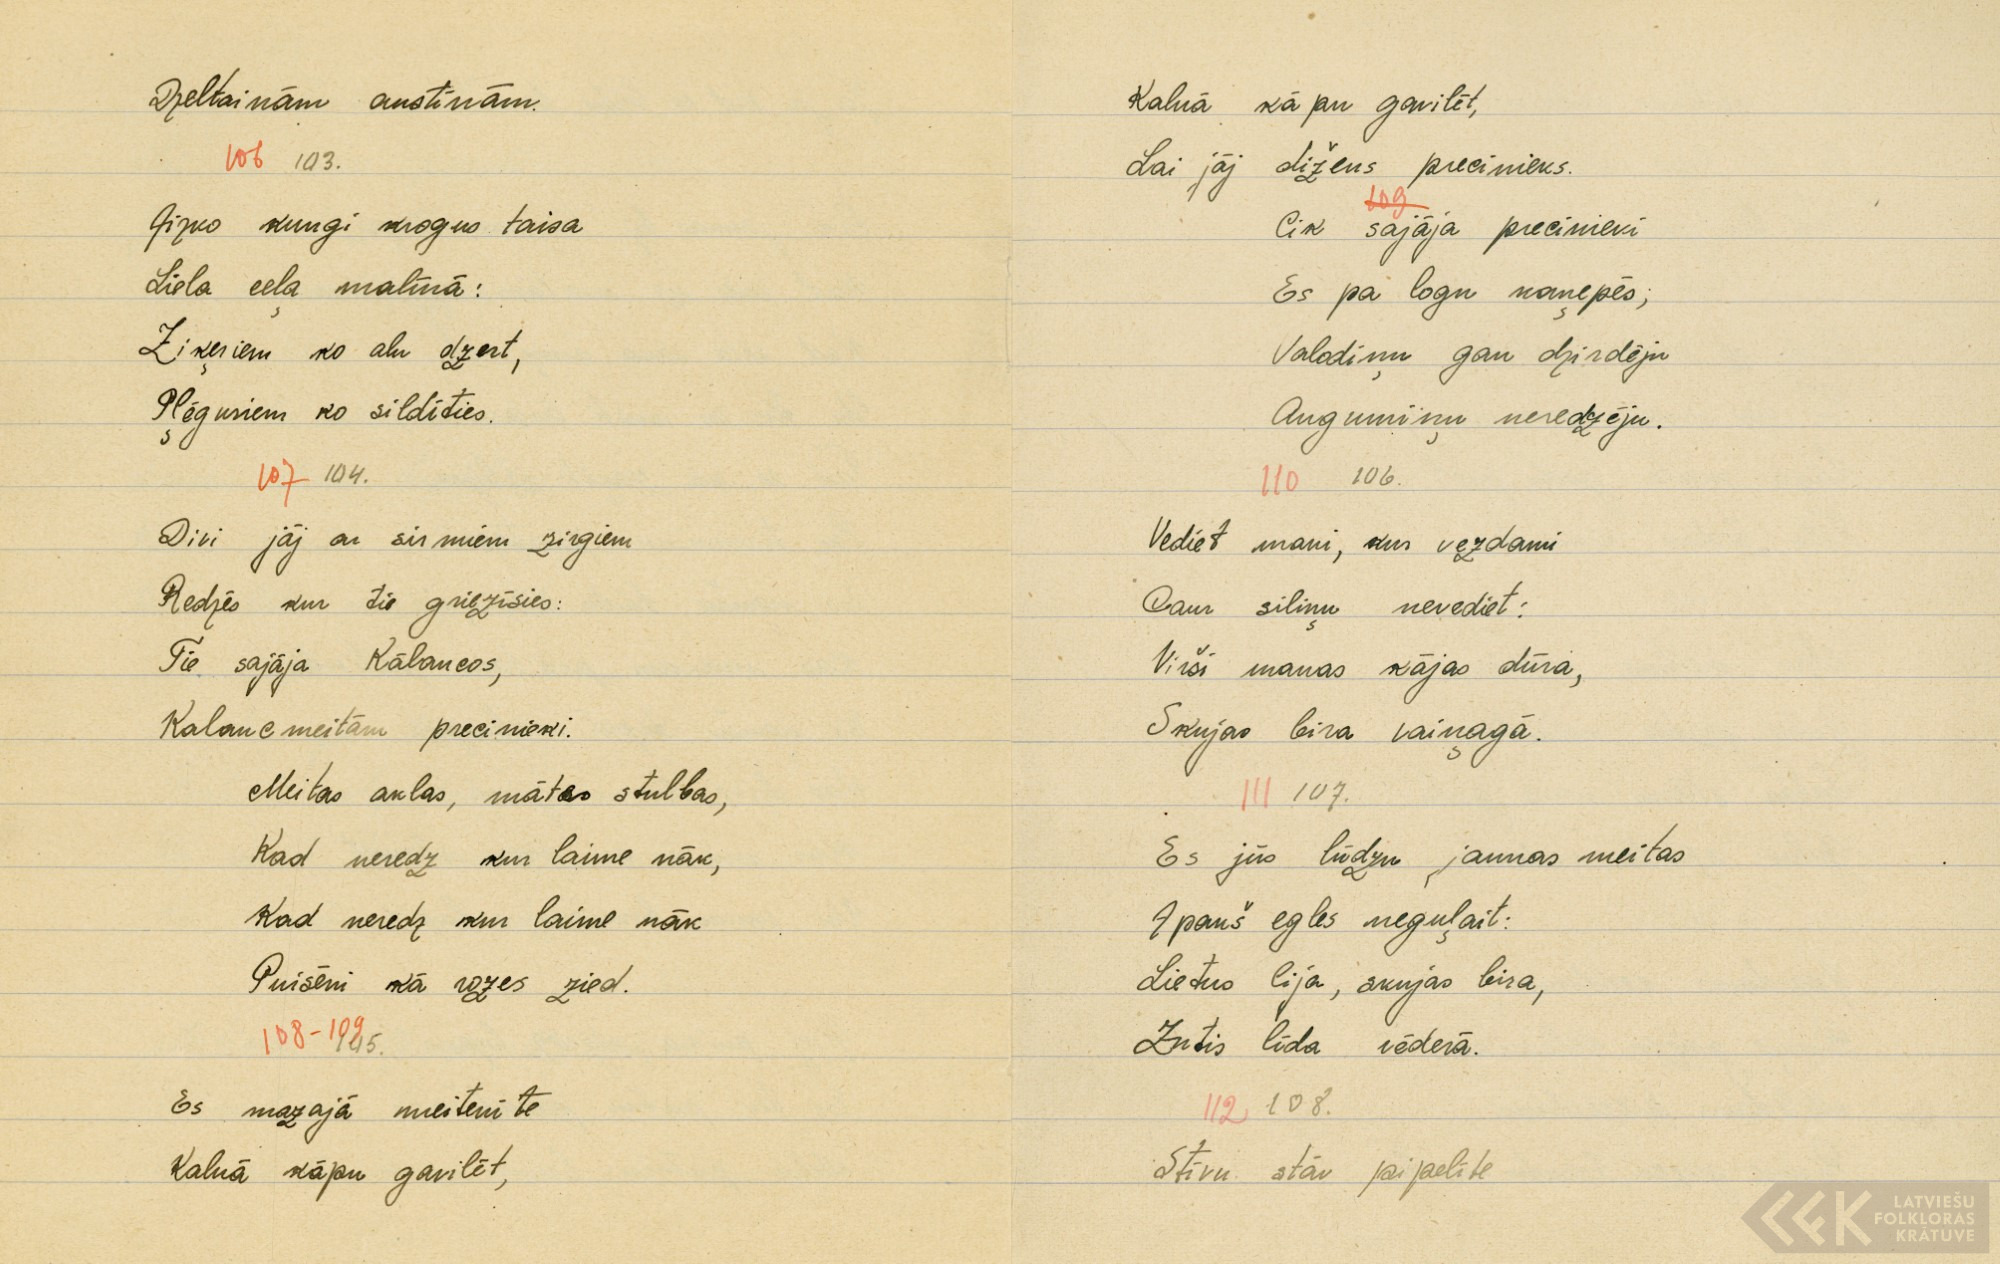 Dzeltainām austiņām.
106 103.
kungi krogus taisa
Liela ceļa maliņā:
Ziķeriem ko alu dzert,
Pļēguriem ko sildīties.
107 104.
Divi jāj ar sirmiem zirgiem
Redzēs kur tie griezīsies:
Tie sajāja Kālancos,
Kalancmeitām precinieki.
Meitas aklas, mātes stulbas,
Kad neredz kur laime nāk,
Kad neredz kur laime nāk
Puisēni kā rozes zied.
108-109 105.
Es mazajā meitenīte
Kalnā kāpu gavilēt,
Kalnā kāpu gavilēt,
Lai jāj dižens precinieks.
109
Cik sajāja precinieki
Es pa logu
Valodiņu gan dzirdēju
Augumiņu neredzēju.
110 106.
Vediet mani, kur vezdami
Caur siliņu nevediet:
Virši manas kājas dūra,
Skujas bira vaiņagā.
111 107.
Es jūs lūdzu jaunas meitas
Apakš egles neguļait:
Lietus lija, skujas bira,
Zutis līda vēderā.
112 108.
Stīvu stāv pipelīte
LATVIEŠU
FOLKLORAS
KRĀTUVE